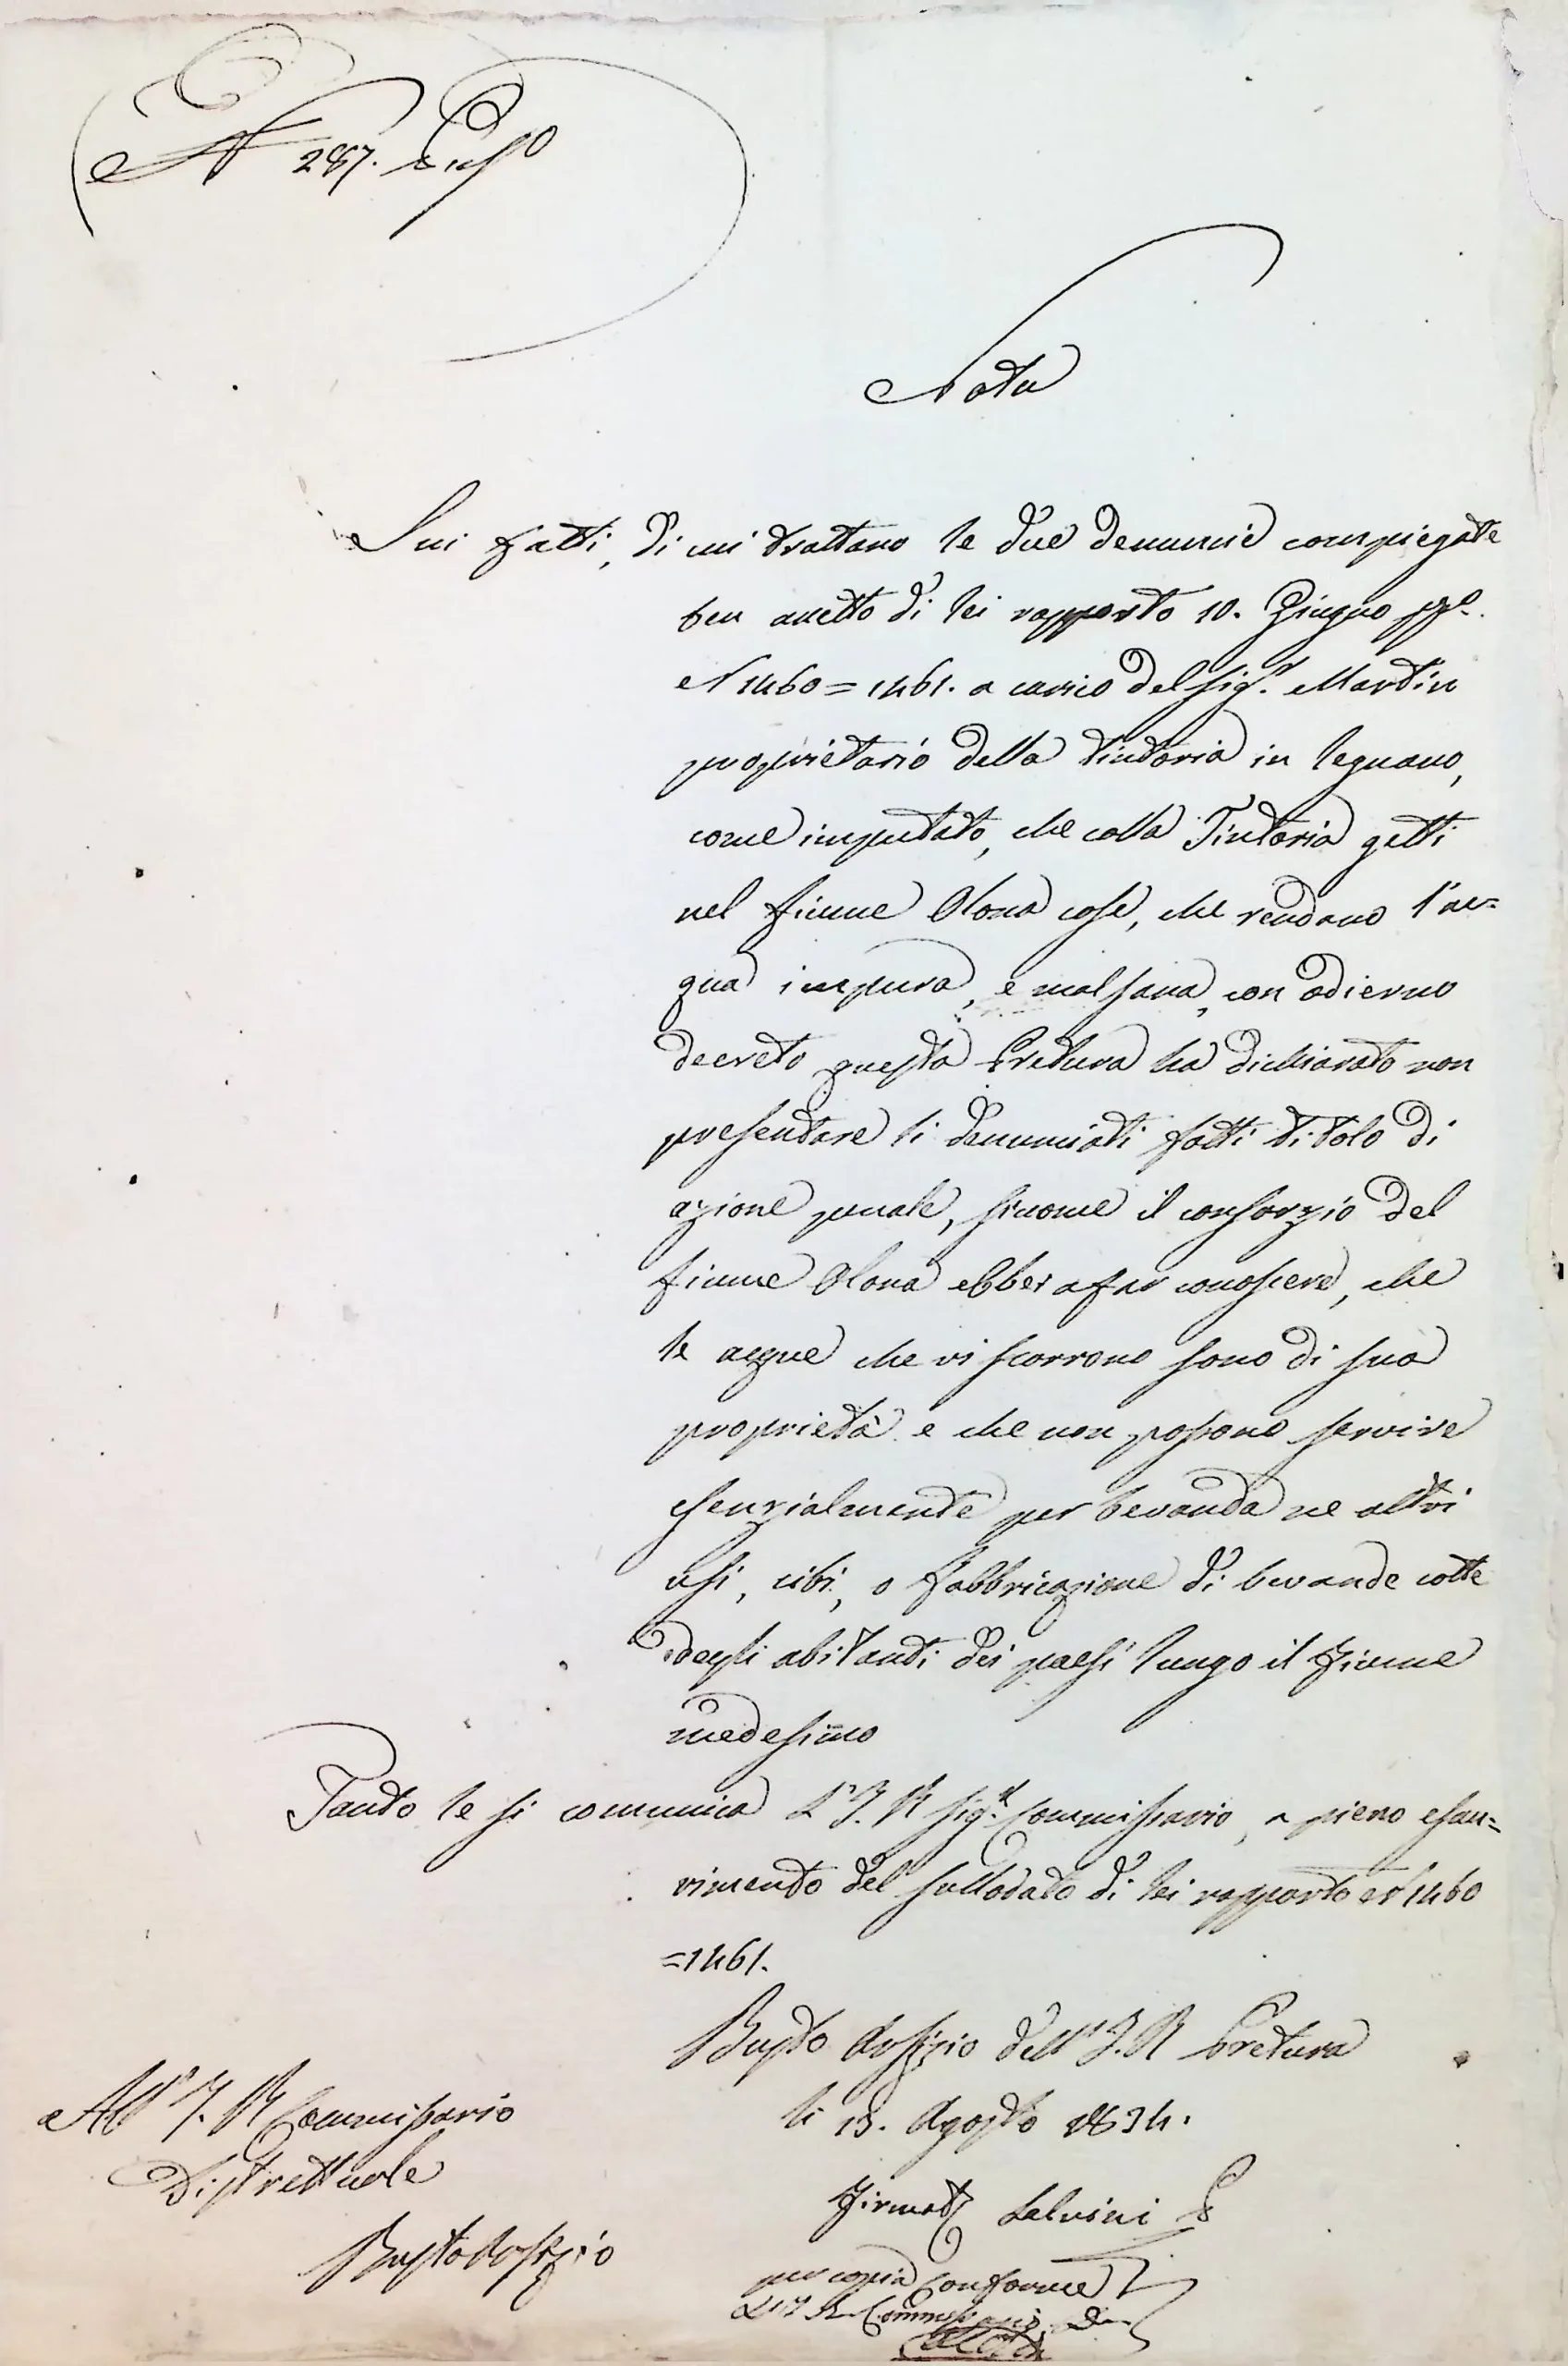 N 287.
Nota
Sui fatti, di cui trattano le due denuncie compiegate
ben anetto di lei rapporto 10. Giugno pp.º
N 1460=1461. a carico del Sig.r Martin
proprietario della tintoria in legnano,
come imputato, che colla Tintoria getti
nel fiume Olona cose, che rendano l'ac=
qua impura, e malsana, con odierno
decreto questa Pretura ha dichiarato non
presentare li denunciati fatti titolo di
azione penale, siccome il consorzio del
fiume Olona ebbe a far conoscere, che
le acque che vi scorrono sono di sua
proprietà e che non possono servire
essenzialmente per bevanda ne altri
usi, cibi, o fabbricazione di bevande cotte
degli abitanti dei paesi lungo il fiume
medesimo
Tanto le si comunica L'I. R Sig.r Commissario, a pieno esau=
rimento del sullodato di lei rapporto N 1460
=1461.
Busto Arsizio dell'I. R Pretura
li 13. Agosto 1834.
All'I. R Commissario
Distrettuale
Busto Arsizio
Firmat Salvini P
per copia Conforme
L'I R Commissario